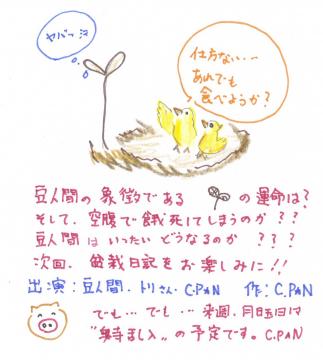 ヤバーッ
仕方ない…
あれでも
食べようか?
豆人間の象徴である の運命は?
そして、空腹で餓死してしまうのか??
豆人間はいったいどうなるのか ???
次回、盆栽日記をお楽しみに!!
出演:豆人間.トリさん.C.PAN 作:C.PAN
でも…でも…来週.月曜日は
の予定です。C.PAN